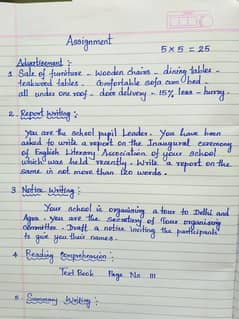 Assignment
5 × 5 = 25
Advertisement :
1. Sale of furniture - wooden chairs - dining tables -
teakwood tables - comfortable sofa cum bed -
all under one roof - door delivery - 15% less - hurry.
2. Report Writing :
You are the school pupil Leader. You have been
asked to write a report on the Inaugural ceremony
of English Literary Association of your school
which was held recently - Write a report on the
same in not more than 120 words.
3 Notice Writing :
Your school is organising a tour to Delhi and
Agra. You are the secretary of Tour organising
committee. Draft a notice inviting the participants
to give you their names.
4 Reading Comprehension :
Text Book Page No 111
5 Summary Writing :